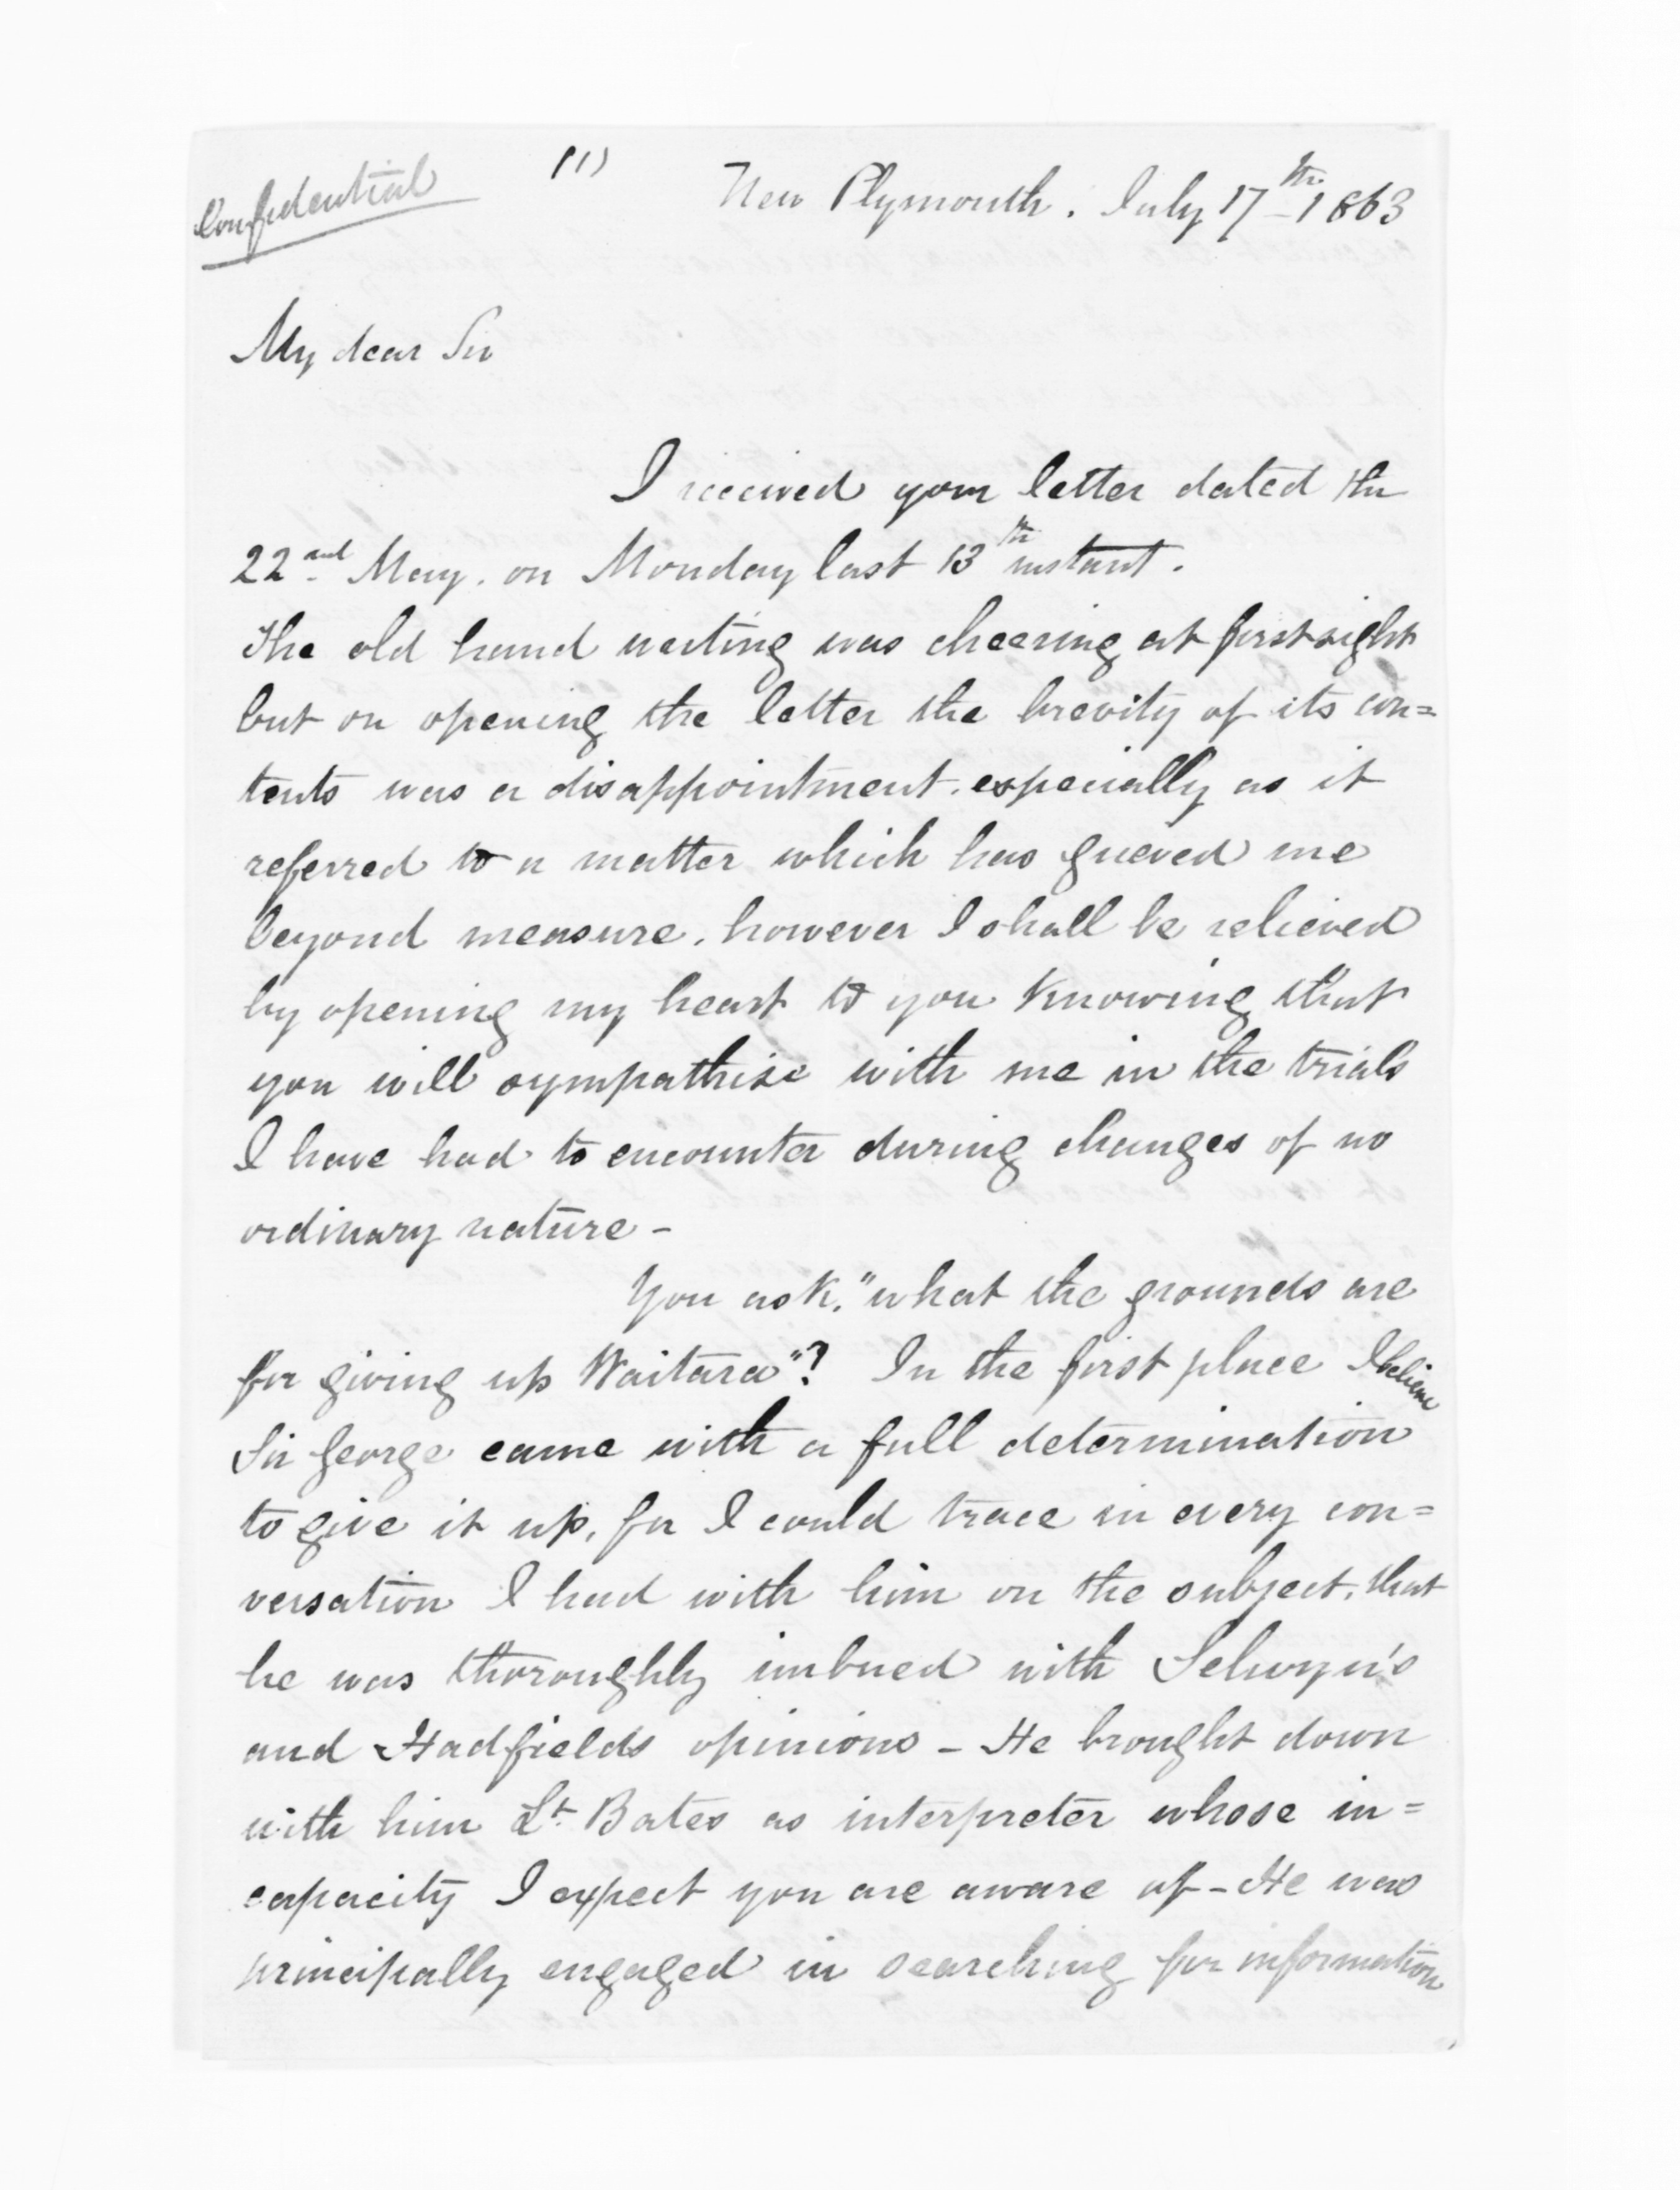 Confidential
(1)
New Plymouth. July 17th 1863
My dear Sir
I received your letter dated the
22nd May. on Monday last 13th instant.
The old hand writing was cheering at first sight
but on opening the letter the brevity of its con=
tents was a disappointment. especially as it
referred to a matter which has grieved me
beyond measure. however I shall be relieved
by opening my heart to you knowing that
you will sympathise with me in the trials
I have had to encounter during changes of no
ordinary nature -
You ask. "what the grounds are
for giving up Waitara"? In the first place I believe
Sir George came with a full determination
to give it up, for I could trace in every con=
versation I had with him on the subject. that
he was thoroughly imbued with Selwyn's
and Hadfields opinions - He brought down
with him Lt. Bates as interpreter whose in=
capacity I expect you are aware of - He was
principally engaged in searching for information